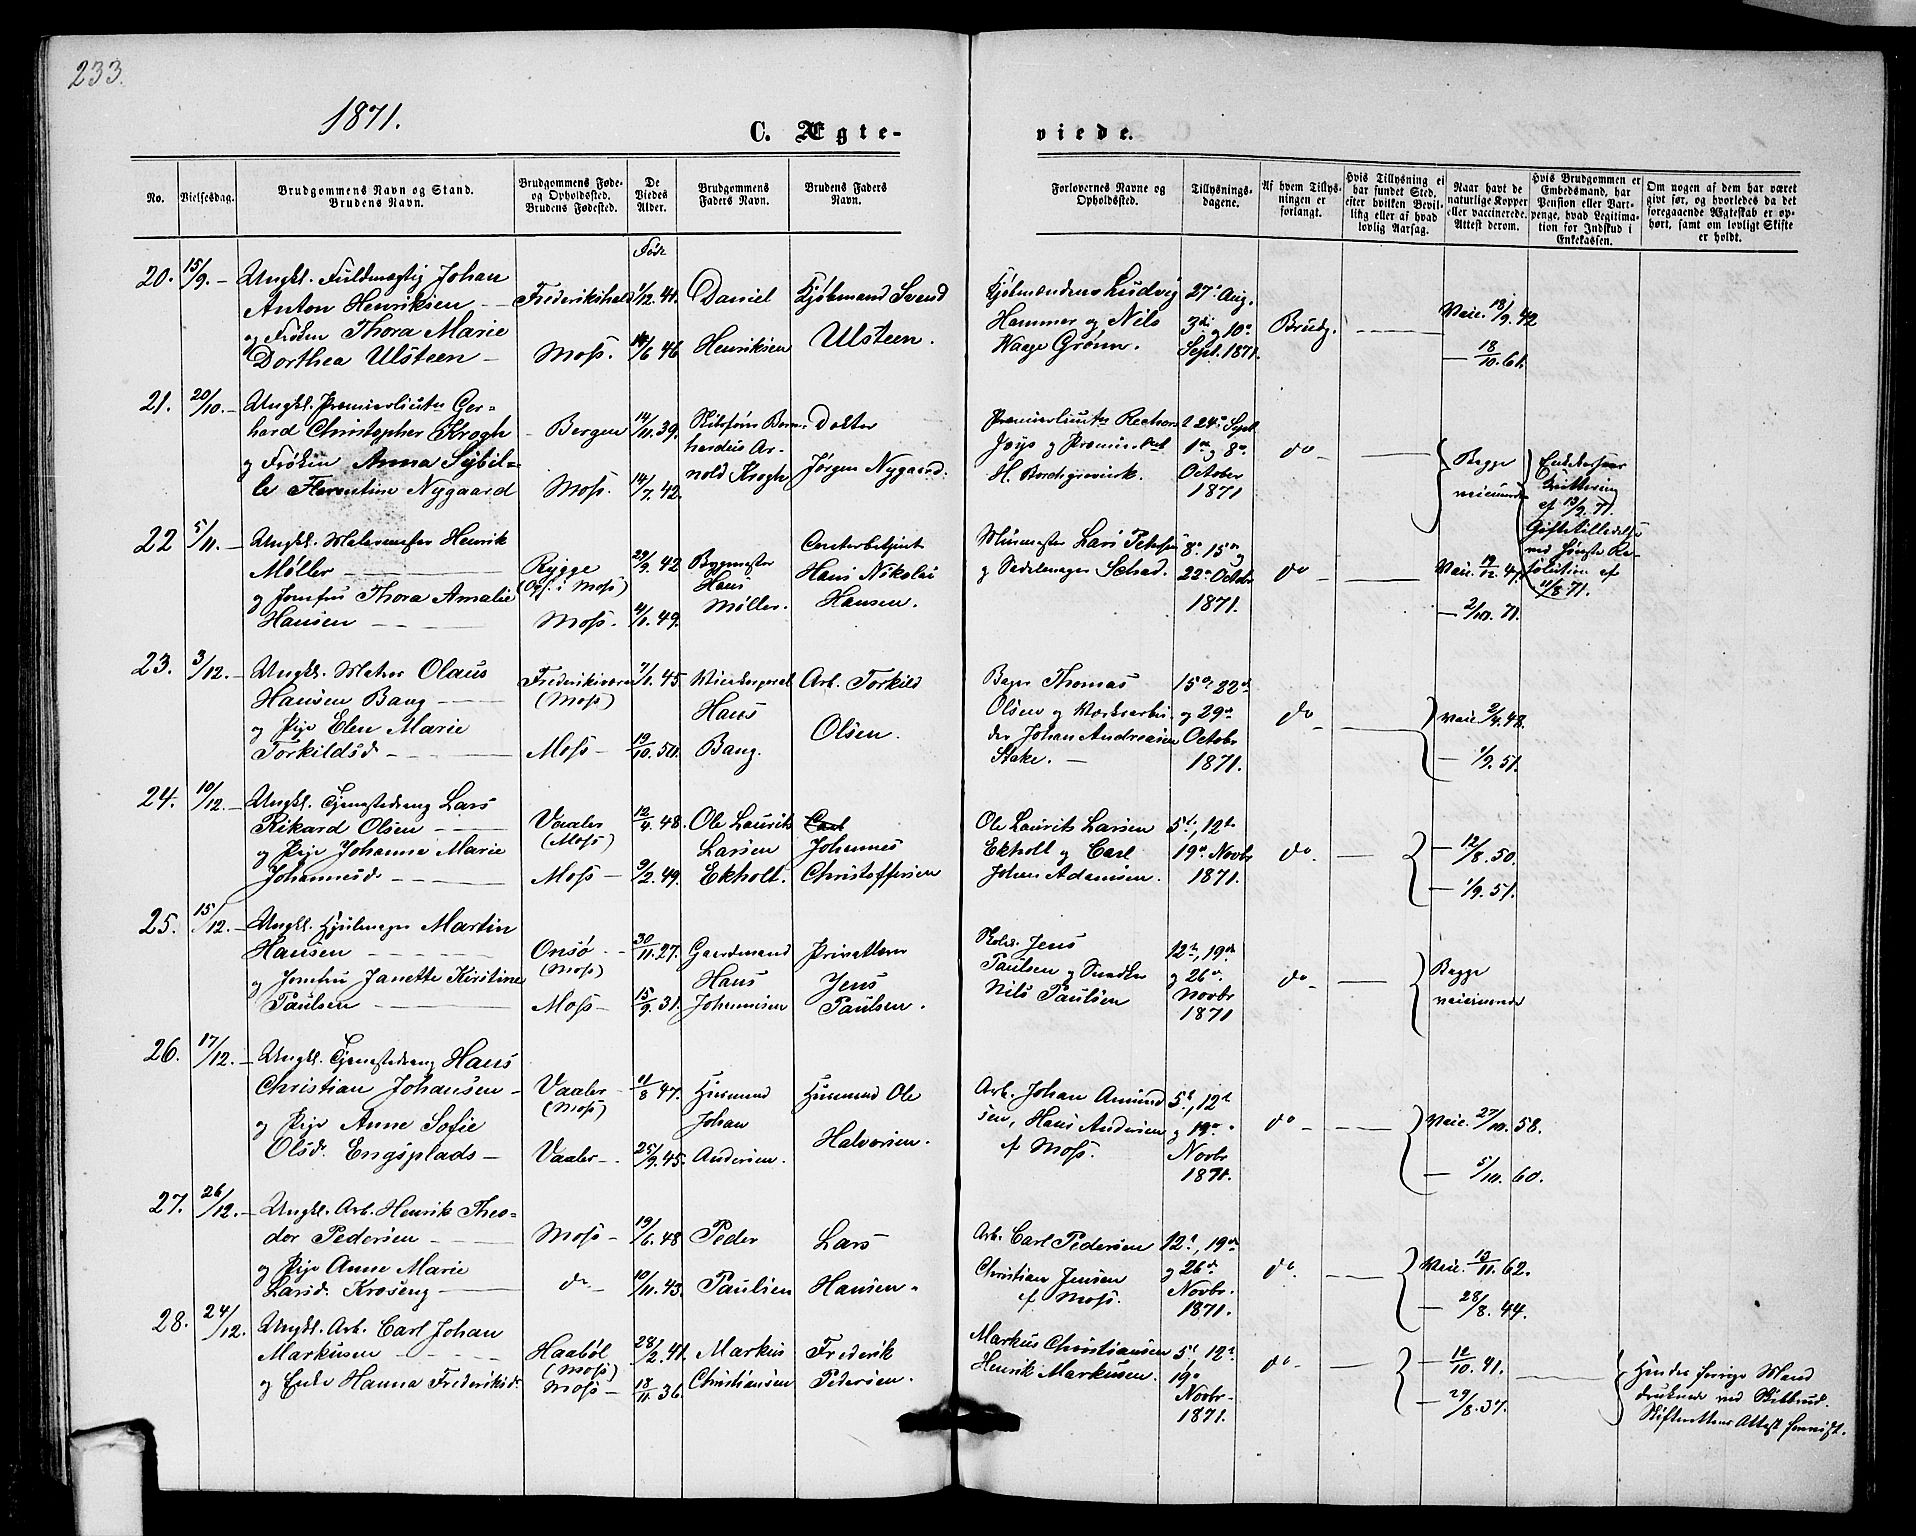 233.
1871.
C. Ægte-
viede.
No.
Vielsesdag.
Brudgommens Navn og Stand.
Brudens Navn.
Brudgommens Føde-
og Opholdssted.
Brudens Fødested.
De
Viedes
Alder.
Brudgommens
Faders Navn.
Brudens Faders
Navn.
Forlovernes Navne og
Opholdssted.
Tillysnings-
dagene.
Af hvem Tillys-
ningen er
forlangt.
Hvis Tillysning ei
har fundet Sted,
efter hvilken Bevil-
ling eller af hvad
lovlig Aarsag.
Naar havt de
naturlige Kopper
eller vaccinerede.
Attest derom.
Hvis Brudgommen er
Embedsmand, har
Pension eller Vart-
penge, hvad Legitima-
tion for Indskud i
Enkekassen.
Om nogen af dem har været
givt før, og hvorledes da det
foregaaende Ægteskab er op-
hørt, samt om lovligt Skifte
er holdt.
Født
20. 15/9. Ungkl. Fuldmægtig Johan
Anton Henriksen
og Frøken Thora Marie
Dorthea Ulsteen
Frederikshald
Moss.
1/12. 41.
14/6 46
Daniel
Henriksen
Kjøbmand Svend
Ulsteen.
Kjøbmændene Ludvig
Hammer og Nils
Waage Grønn.
27. Aug.
3die og 10de
Sept. 1871.
Brudg.
Vac. 18/9. 42
18/10. 61.
21. 20/10. Ungkl. Premierlieutn Ger-
hard Christopher Krogh
og Frøken Anna Sybil-
le Florentine Nygaard
Bergen
Moss.
14/11. 39.
14/7. 42.
Bern-
hardus Ar-
nold Krogh
Doktor
Jørgen Nygaard.
24de Sept
1ste og 8de
October
1871
do
Begge
vaccinerede
af 13/9. 71.
Giftetilladelse
ved
af
11/8 71.
22 5/11. Ungkl. Malermester Henrik
Møller
og Jomfru Thora Amalie
Hansen
Rygge
(Oph. i Moss)
Moss.
29/9. 42
4/1. 49.
Bygmester
Hans
Møller.
Hans Nikolai
Hansen.
Murmester Lars Petersen
og Sadelmager Schad.
8de 15de og
22de Octobr
1871.
do
2/10. 71.
23. 3/12. Ungkl. Olaus
Hansen Bang
og Pige Elen Marie
Torkildsd.
(Moss)
Moss
7/1. 45.
19/10. 50.
Hans
Bang.
Arb. Torkild
Olsen.
Bager Thomas
Olsen og Værksarbei-
der Johan Andreasen
Stake.
15de 22de
og 29de
Octobr
1871.
do
Vac. 2/4. 48.
1/9. 51.
24. 10/12. Ungkl. Tjenestedreng Lars
Rikard Olsen
og Pige Johanne Marie
Johannesd.
Vaaler
(Moss)
Moss
12/4. 48.
9/2. 49.
Ole Laurits
Larsen
Ekholt.
Carl
Johannes
Christoffersen
Ole Laurits Larsen
Ekholt og Carl
Johan Adamsen.
5te, 12te
19de Novbr
1871.
do.
12/8. 50.
1/9. 51.
25. 15/12. Ungkl. Hjulmager Martin
Hansen
og Jomfru Janette Kirstine
Paulsen
Onsø
(Moss)
Moss
30/11. 27.
15/9. 31.
Gaardmand
Hans
Johannesen
Jens
Paulsen.
Jens
Paulsen og Snedker
Nils Paulsen
12te, 19de
og 26de
Novbr
1871
do
Begge
vaccinerede
26. 17/12. Ungkl. Tjenestedreng Hans
Christian Johansen
og Pige Anne Sofie
Olsd. Engsplads
Vaaler
(Moss)
Vaaler
11/8 47.
25/9. 45.
Husmand
Johan
Andersen.
Husmand Ole
Halvorsen.
Arb. Johan Amund
sen, Hans Andersen
af Moss.
5te, 12te
og 19de
Novbr
1871.
do
Vac. 27/10. 58.
5/10. 60.
27. 26/12. Ungkl. Arb. Henrik Theo-
dor Pedersen
og Pige Anne Marie
Larsd. Kroseng
Moss
do
19/6. 48
10/11. 43.
Peder
Paulsen
Lars
Hansen
Arb. Carl Pedersen
Christian Jensen
af Moss.
12te, 19de
og 26de
Novbr.
1871.
do.
Vac. 13/11. 62.
28/8. 44.
28. 24/12. Ungkl. Arb. Carl Johan
Markusen
og Enke Hanna Frederiksd.
Haabøl
(Moss)
Moss
28/2. 41.
18/11. 36.
Markus
Christiansen
Frederik
Pedersen.
Markus Christiansen
Henrik Markusen.
5te 12te
19de
Novbr.
1871.
do
12/10. 41.
29/8. 37.
Hendes forrige Mand
druknede ved
Skifterettens Attest forevist.